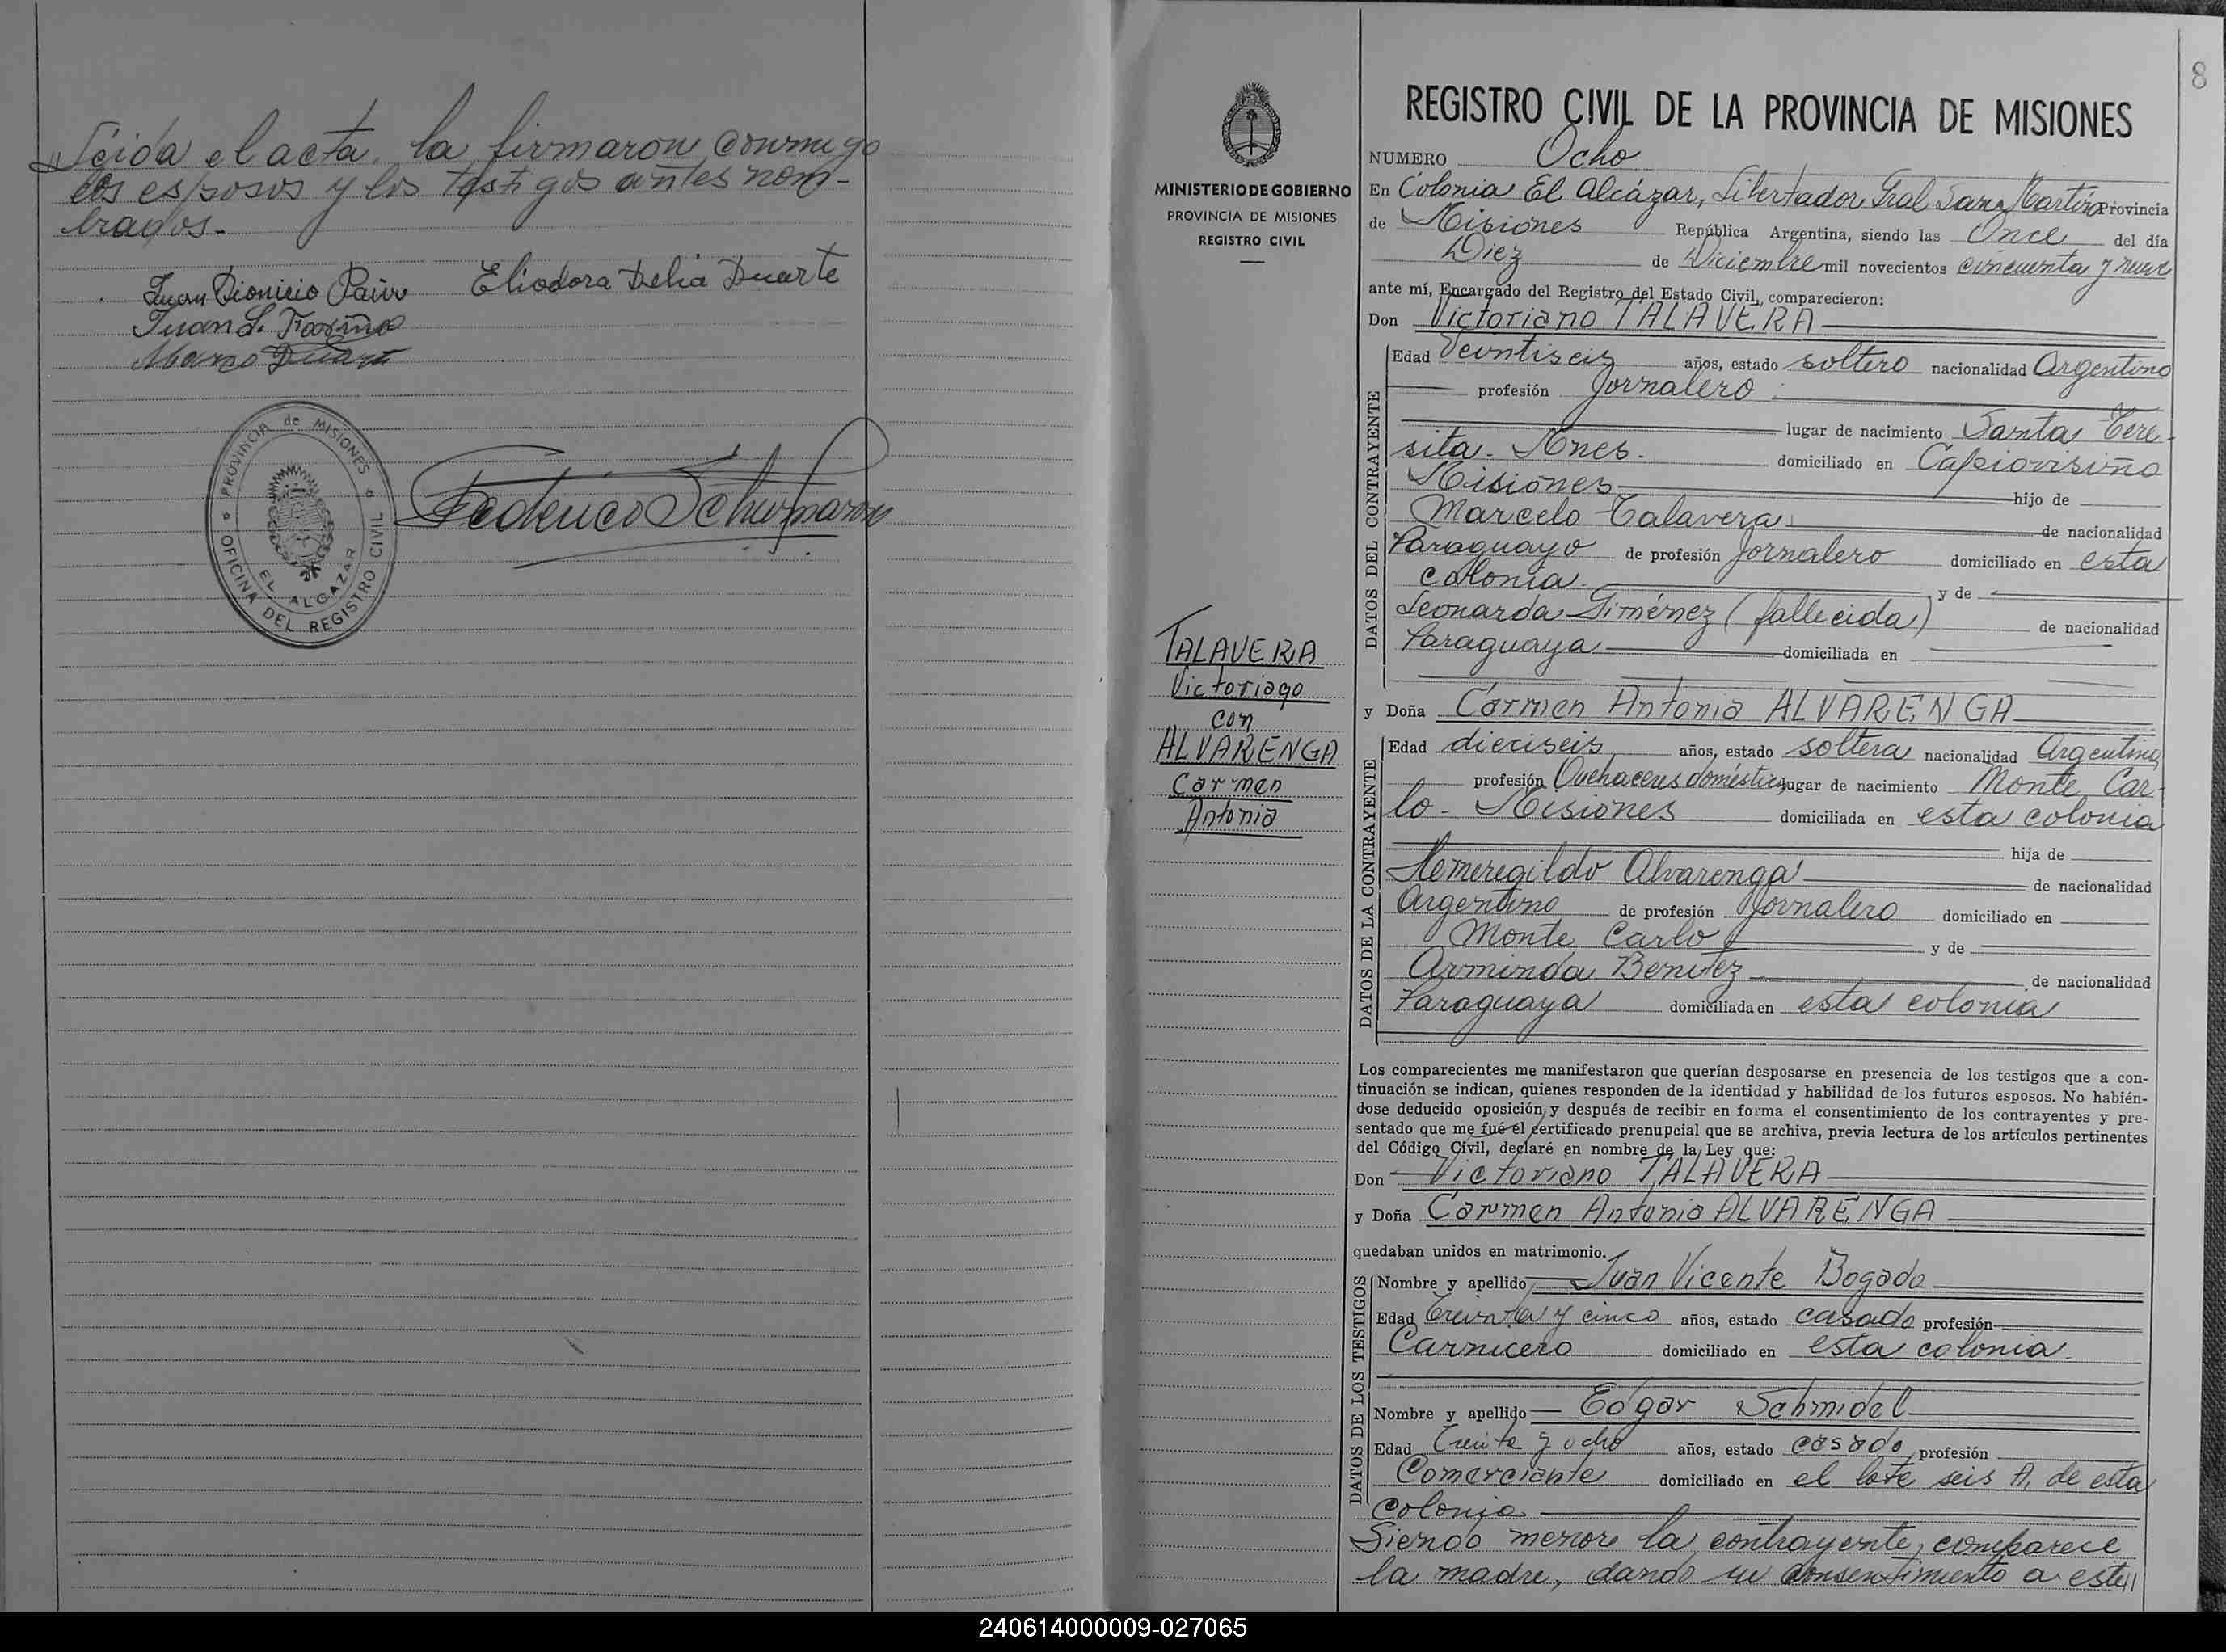 Leida el acta, la firmaron conmigo
los esposos y los testigos antes nom-
brados.-
Juan Dionicio Paiva Eliodora Delia Duarte
Juan S.
Marco Duarte
PROVINCIA de MISIONES
OFICINA DEL REGISTRO CIVIL
EL ALCAZAR
Federico
8
MINISTERIO DE GOBIERNO
PROVINCIA DE MISIONES
REGISTRO CIVIL
TALAVERA
Victoriano
con
ALVARENGA
Carmen
Antonia
REGISTRO CIVIL DE LA PROVINCIA DE MISIONES
NUMERO Ocho
En Colonia El Alcázar, Libertador Gral San Martín Provincia
de Misiones República Argentina, siendo las Once del día
Diez de Diciembre mil novecientos cincuenta y nueve
ante mí, Encargado del Registro del Estado Civil, comparecieron:
Don Victoriano TALAVERA
DATOS DEL CONTRAYENTE
Edad Veintiseis años, estado soltero nacionalidad Argentino
profesión Jornalero
lugar de nacimiento Santa Tere-
sita - Mnes. domiciliado en Capiovisiño
Misiones hijo de
Marcelo Talavera de nacionalidad
Paraguayo de profesión Jornalero domiciliado en esta
colonia. y de
Leonarda Giménez (fallecida) de nacionalidad
Paraguaya domiciliada en
y Doña Carmen Antonia ALVARENGA
DATOS DE LA CONTRAYENTE
Edad dieciseis años, estado soltera nacionalidad Argentina
profesión Quehaceres domésticos lugar de nacimiento Monte Car-
lo - Misiones domiciliada en esta colonia
hija de
Hemeregildo Alvarenga de nacionalidad
Argentino de profesión Jornalero domiciliado en
Monte Carlo y de
Arminda Benitez de nacionalidad
Paraguaya domiciliada en esta colonia
Los comparecientes me manifestaron que querían desposarse en presencia de los testigos que a con-
tinuación se indican, quienes responden de la identidad y habilidad de los futuros esposos. No habién-
dose deducido oposición, y después de recibir en forma el consentimiento de los contrayentes y pre-
sentado que me fué el certificado prenupcial que se archiva, previa lectura de los artículos pertinentes
del Código Civil, declaré en nombre de la Ley que:
Don Victoriano TALAVERA
y Doña Carmen Antonia ALVARENGA
quedaban unidos en matrimonio.
DATOS DE LOS TESTIGOS
Nombre y apellido Juan Vicente Bogado
Edad Treinta y cinco años, estado casado profesión
Carnicero domiciliado en esta colonia.
Nombre y apellido Edgar Schmidel
Edad Treinta y ocho años, estado casado, profesión
Comerciante domiciliado en el lote seis A, de esta
colonia
Siendo menor la contrayente, comparece
la madre, dando su consentimiento a este//
240614000009-027065